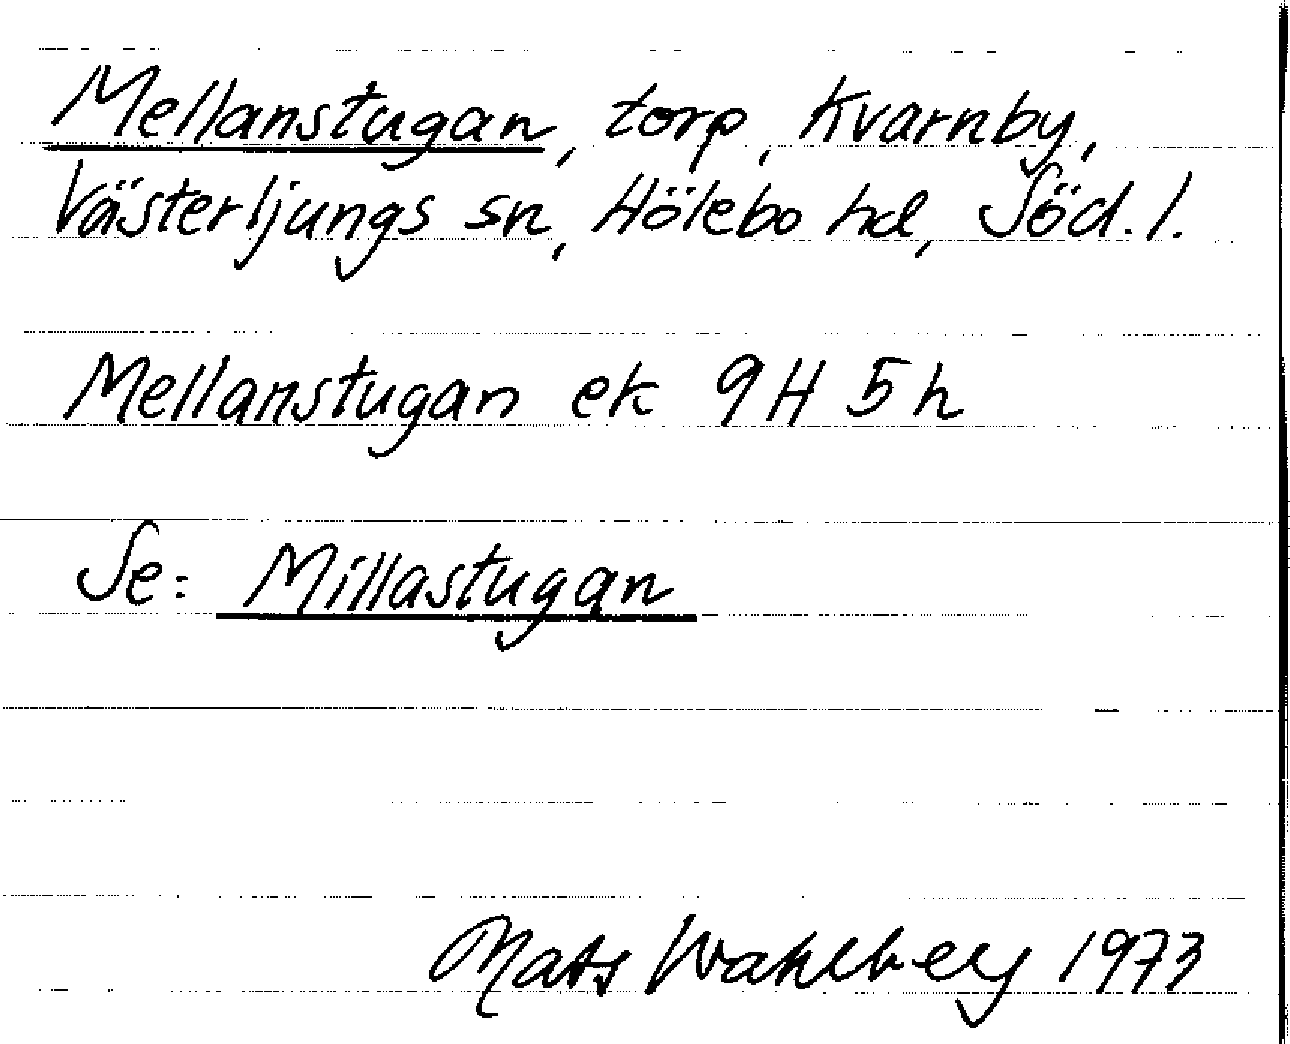 Mellanstugan, torp, Kvarnby,
Västerljungs sn, Hölebo hd, Söd. l.
Mellanstugan ek 9H 5h
Se: Millastugan
Mats Wahlberg 1973